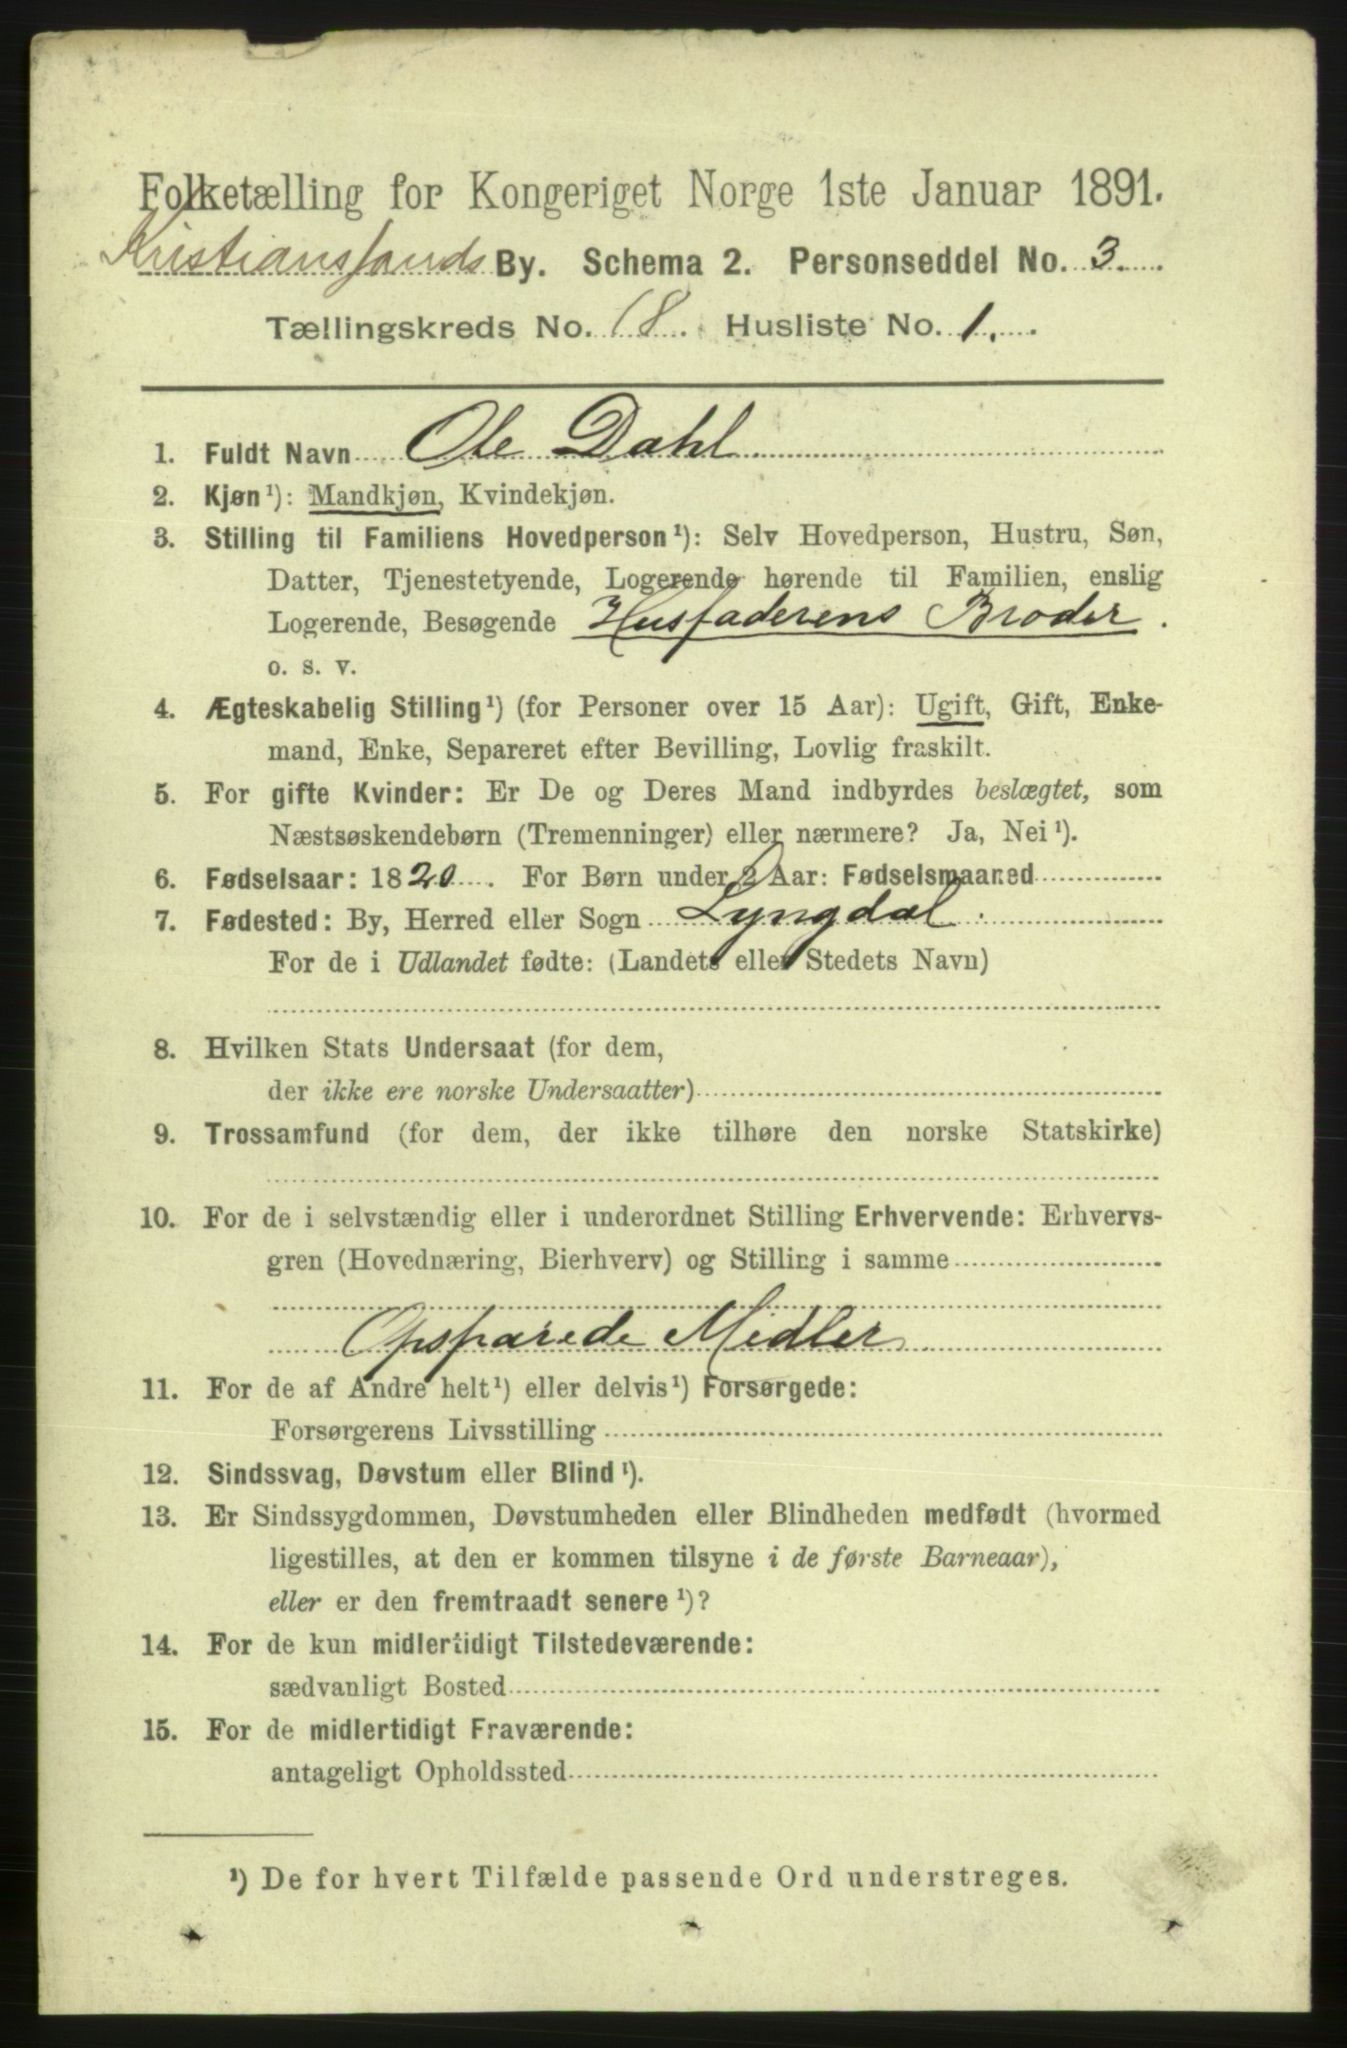 Folketælling for Kongeriget Norge 1ste Januar 1891.
Kristianssands By. Schema 2. Personseddel No. 3.
Tællingskreds No. 18. Husliste No. 1.
1. Fuldt Navn Ole Dahl
2. Kjøn¹): Mandkjøn, Kvindekjøn.
3. Stilling til Familiens Hovedperson¹): Selv Hovedperson, Hustru, Søn,
Datter, Tjenestetyende, Logerende hørende til Familien, enslig
Logerende, Besøgende Husfaderens Broder.
o. s. v.
4. Ægteskabelig Stilling¹) (for Personer over 15 Aar): Ugift, Gift, Enke-
mand, Enke, Separeret efter Bevilling, Lovlig fraskilt.
5. For gifte Kvinder: Er De og Deres Mand indbyrdes beslægtet, som
Næstsøskendebørn (Tremenninger) eller nærmere? Ja, Nei¹).
6. Fødselsaar: 1820. For Børn under 2 Aar: Fødselsmaaned
7. Fødested: By, Herred eller Sogn Lyngdal.
For de i Udlandet fødte: (Landets eller Stedets Navn)
8. Hvilken Stats Undersaat (for dem,
der ikke ere norske Undersaatter)
9. Trossamfund (for dem, der ikke tilhøre den norske Statskirke)
10. For de i selvstændig eller i underordnet Stilling Erhvervende: Erhvervs-
gren (Hovednæring, Bierhverv) og Stilling i samme
Opsparede Midler
11. For de af Andre helt¹) eller delvis¹) Forsørgede:
Forsørgerens Livsstilling
12. Sindssvag, Døvstum eller Blind¹).
13. Er Sindssygdommen, Døvstumheden eller Blindheden medfødt (hvormed
ligestilles, at den er kommen tilsyne i de første Barneaar),
eller er den fremtraadt senere¹)?
14. For de kun midlertidigt Tilstedeværende:
sædvanligt Bosted
15. For de midlertidigt Fraværende:
antageligt Opholdssted
¹) De for hvert Tilfælde passende Ord understreges.